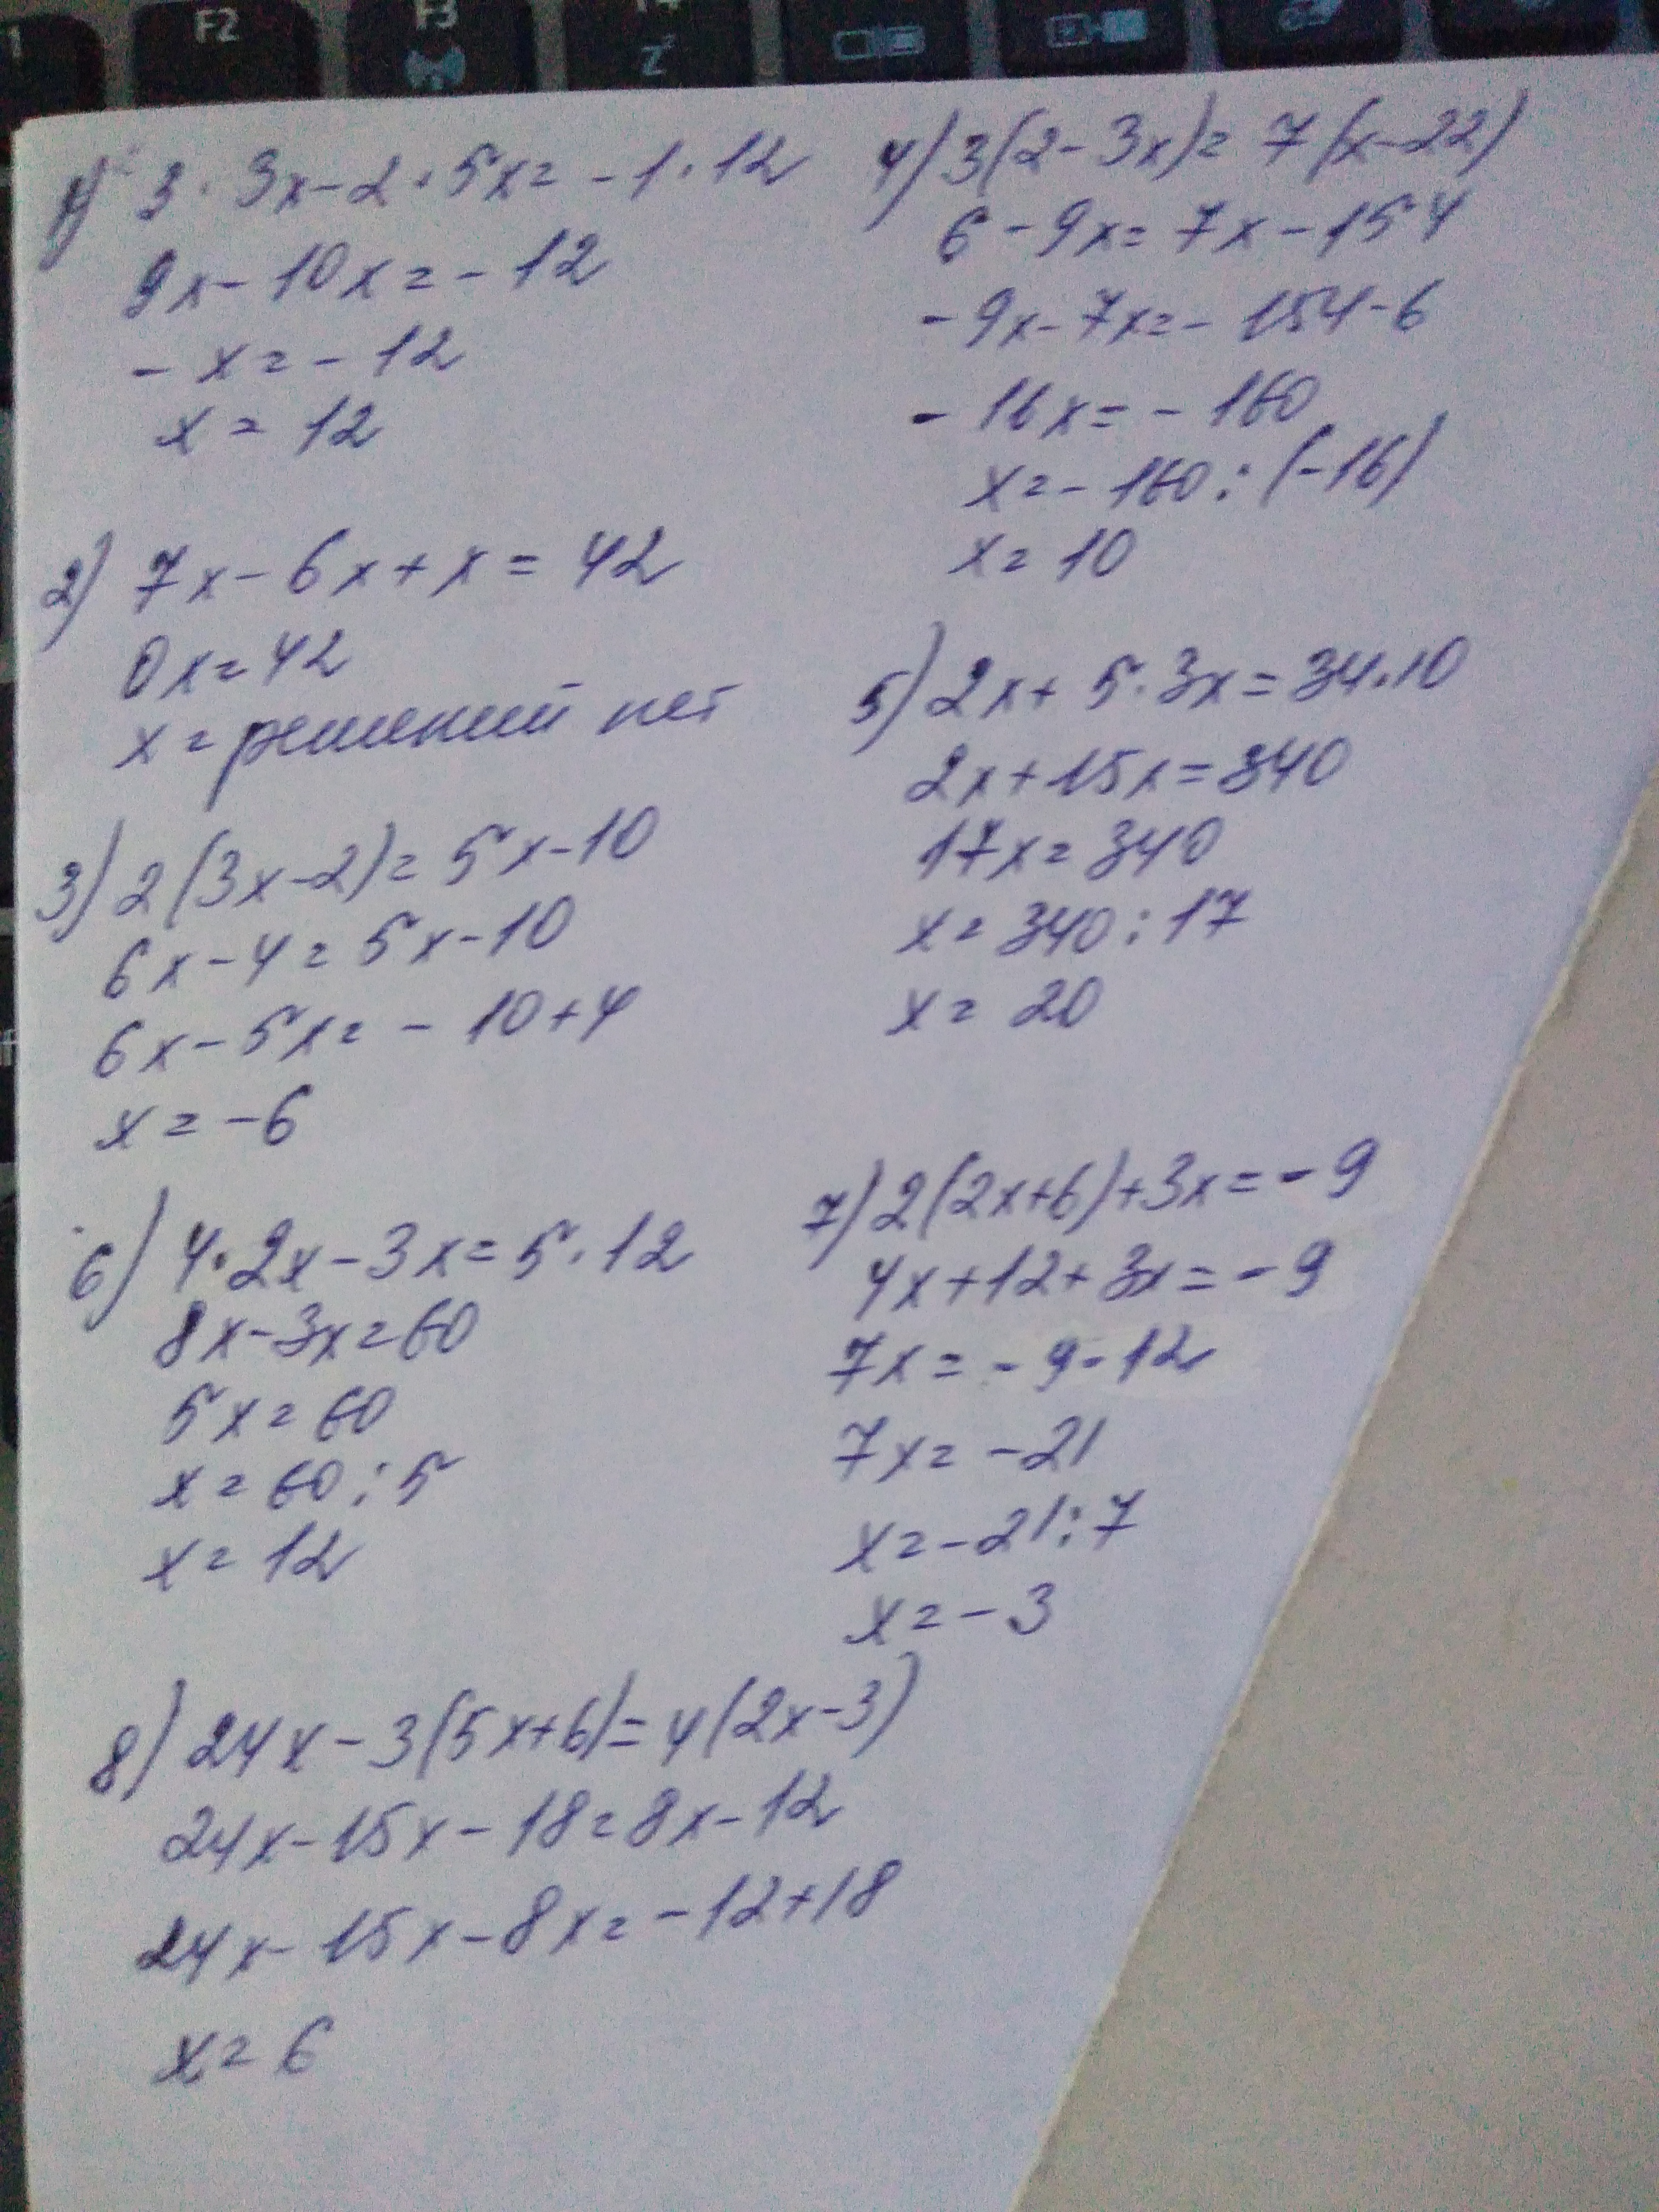 F2
F3
1) 3·3x-2·5x=-1·12
9x-10x=-12
-x=-12
x=12
2) 7x-6x+x=42
0x=42
x=решений нет
3) 2(3x-2)=5x-10
6x-4=5x-10
6x-5x=-10+4
x=-6
6) 4·2x-3x=5·12
8x-3x=60
5x=60
x=60:5
x=12
4) 3(2-3x)=7(x-22)
6-9x=7x-154
-9x-7x=-154-6
-16x=-160
x=-160:(-16)
x=10
5) 2x+5·3x=34·10
2x+15x=340
17x=340
x=340:17
x=20
7) 2(2x+6)+3x=-9
4x+12+3x=-9
7x=-9-12
7x=-21
x=-21:7
x=-3
8) 24x-3(5x+6)=4(2x-3)
24x-15x-18=8x-12
24x-15x-8x=-12+18
x=6